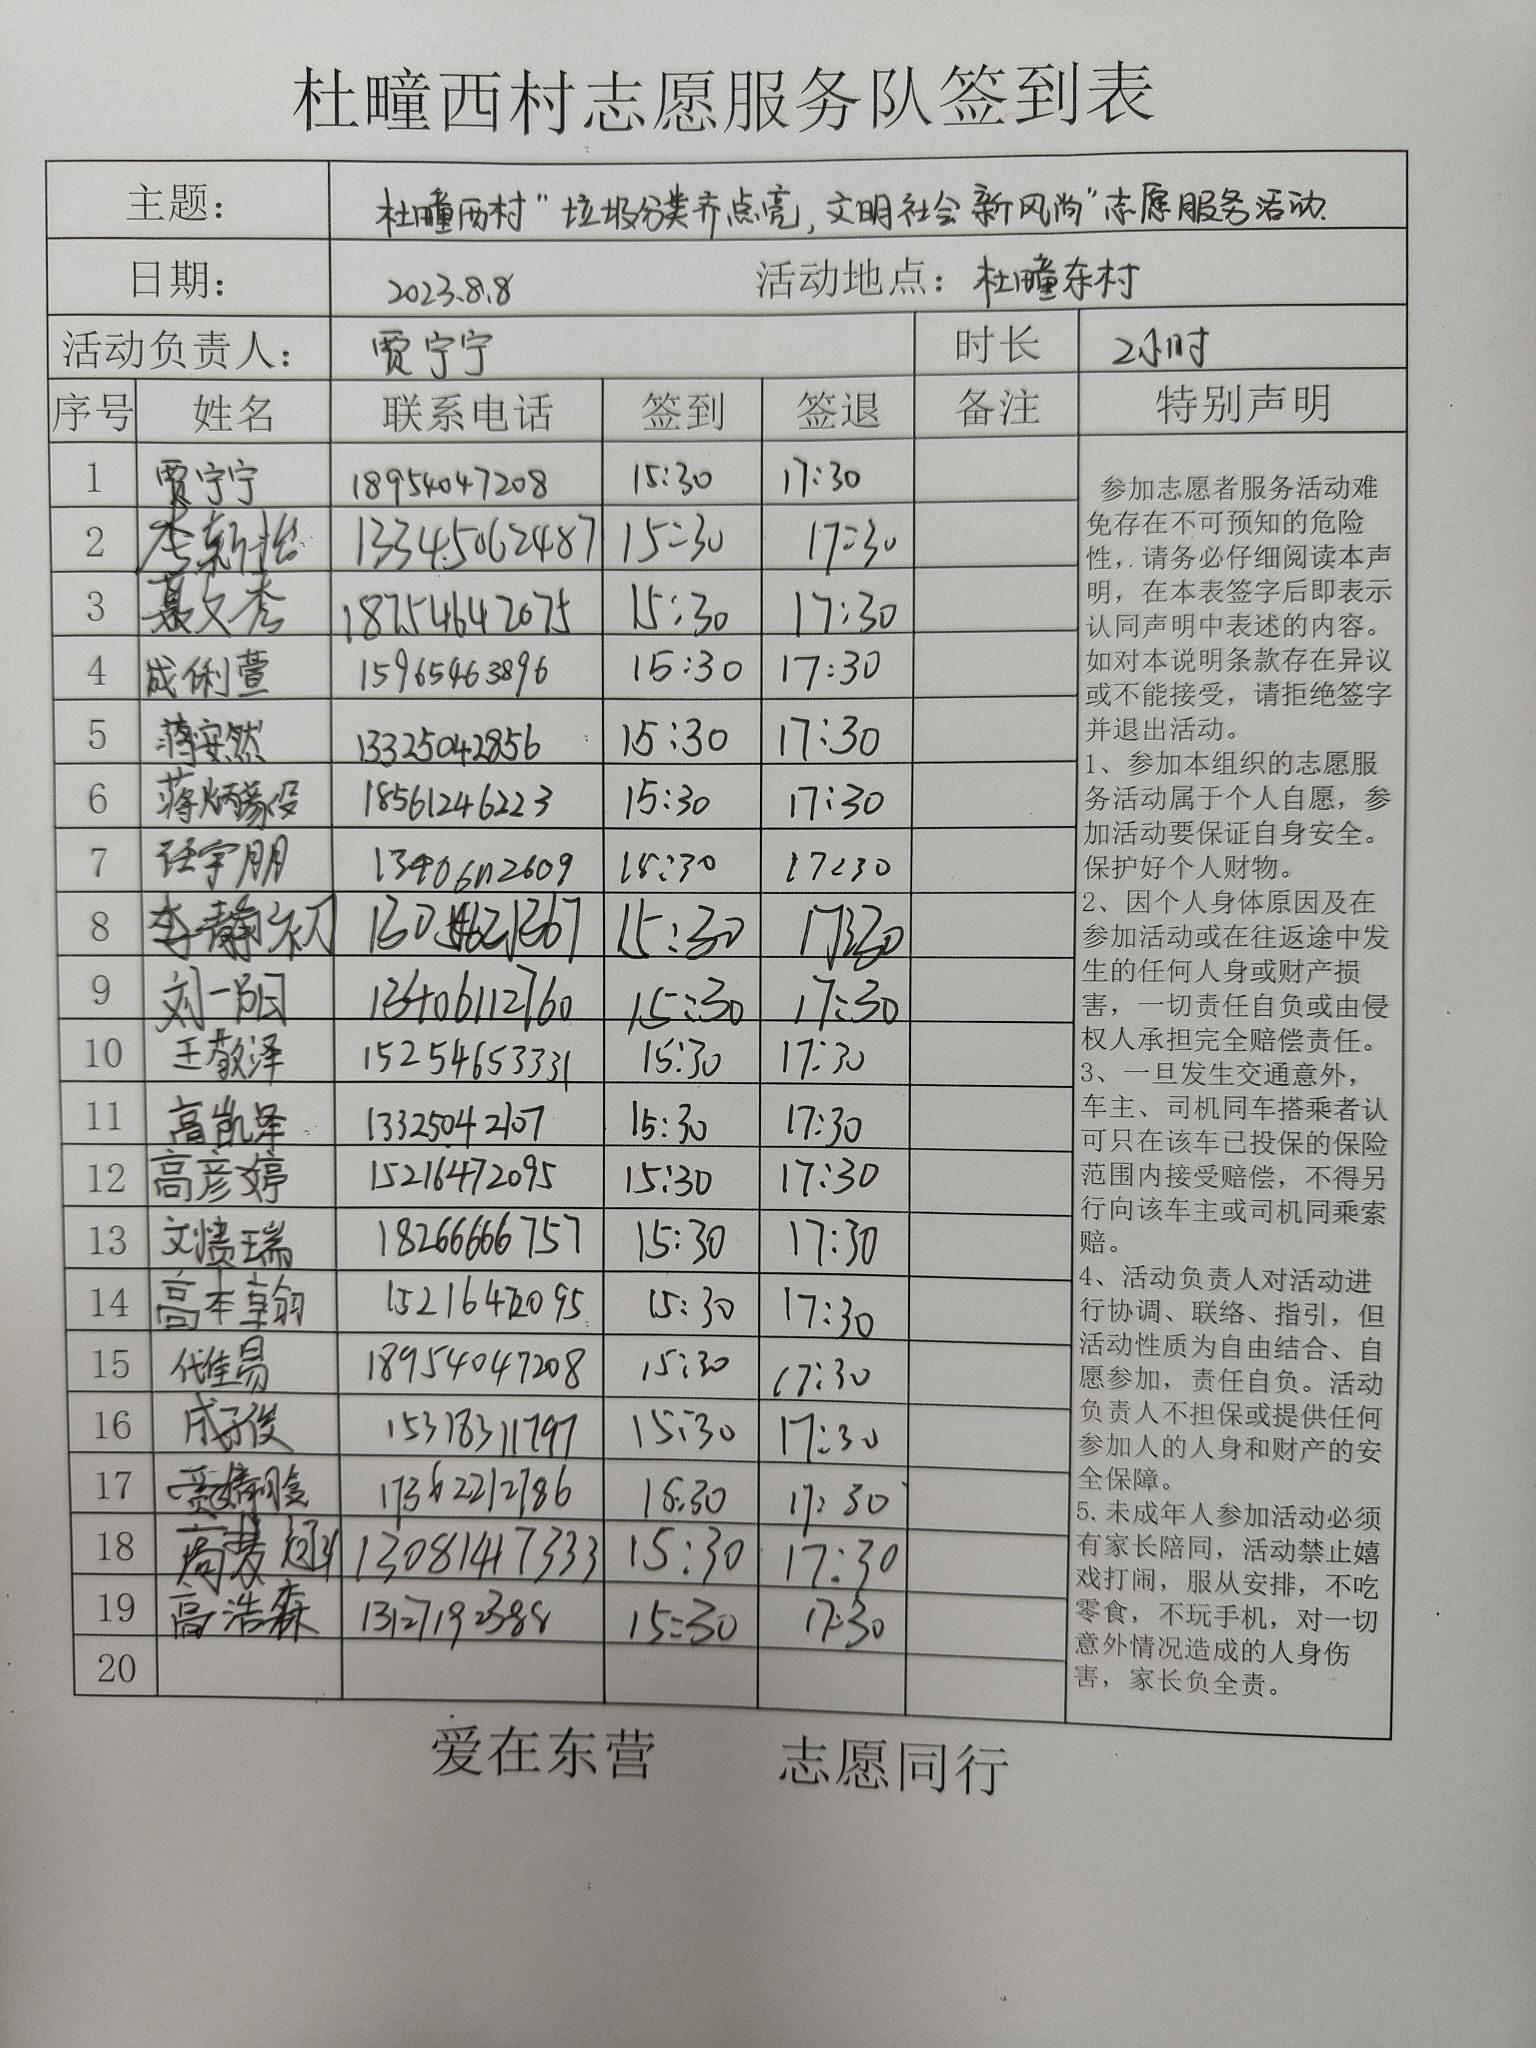 杜疃西村志愿服务队签到表
主题： 杜疃西村“垃圾分类齐点亮，文明社会新风尚”志愿服务活动.
日期： 2023.8.8 活动地点：杜疃东村
活动负责人： 贾宁宁 时长 2小时
序号 姓名 联系电话 签到 签退 备注 特别声明
1 贾宁宁 18954047208 15:30 17:30
2 13345062487 15:30 17:30
3 聂文秀 18754642075 15:30 17:30
4 成俐萱 15965463896 15:30 17:30
5 蒋安然 13325042856 15:30 17:30
6 18561246223 15:30 17:30
7 任宇朋 15:30 17:30
8 15:30
9 刘一阳 13406112760 15:30 17:30
10 王敬泽 15254653331 15:30 17:30
11 高凯泽 13325042107 15:30 17:30
12 高彦婷 15216472095 15:30 17:30
13 18266666757 15:30 17:30
14 15216472095 15:30 17:30
15 代佳易 18954047208 15:30 17:30
16 成子俊 15318311797 15:30 17:30
17 15:30 17:30
18 13081417333 15:30 17:30
19 高浩森 13127192388 15:30 17:30
20
参加志愿者服务活动难
免存在不可预知的危险
性，请务必仔细阅读本声
明，在本表签字后即表示
认同声明中表述的内容。
如对本说明条款存在异议
或不能接受，请拒绝签字
并退出活动。
1、参加本组织的志愿服
务活动属于个人自愿，参
加活动要保证自身安全。
保护好个人财物。
2、因个人身体原因及在
参加活动或在往返途中发
生的任何人身或财产损
害，一切责任自负或由侵
权人承担完全赔偿责任。
3、一旦发生交通意外，
车主、司机同车搭乘者认
可只在该车已投保的保险
范围内接受赔偿，不得另
行向该车主或司机同乘索
赔。
4、活动负责人对活动进
行协调、联络、指引，但
活动性质为自由结合、自
愿参加，责任自负。活动
负责人不担保或提供任何
参加人的人身和财产的安
全保障。
5.未成年人参加活动必须
有家长陪同，活动禁止嬉
戏打闹，服从安排，不吃
零食，不玩手机，对一切
意外情况造成的人身伤
害，家长负全责。
爱在东营 志愿同行